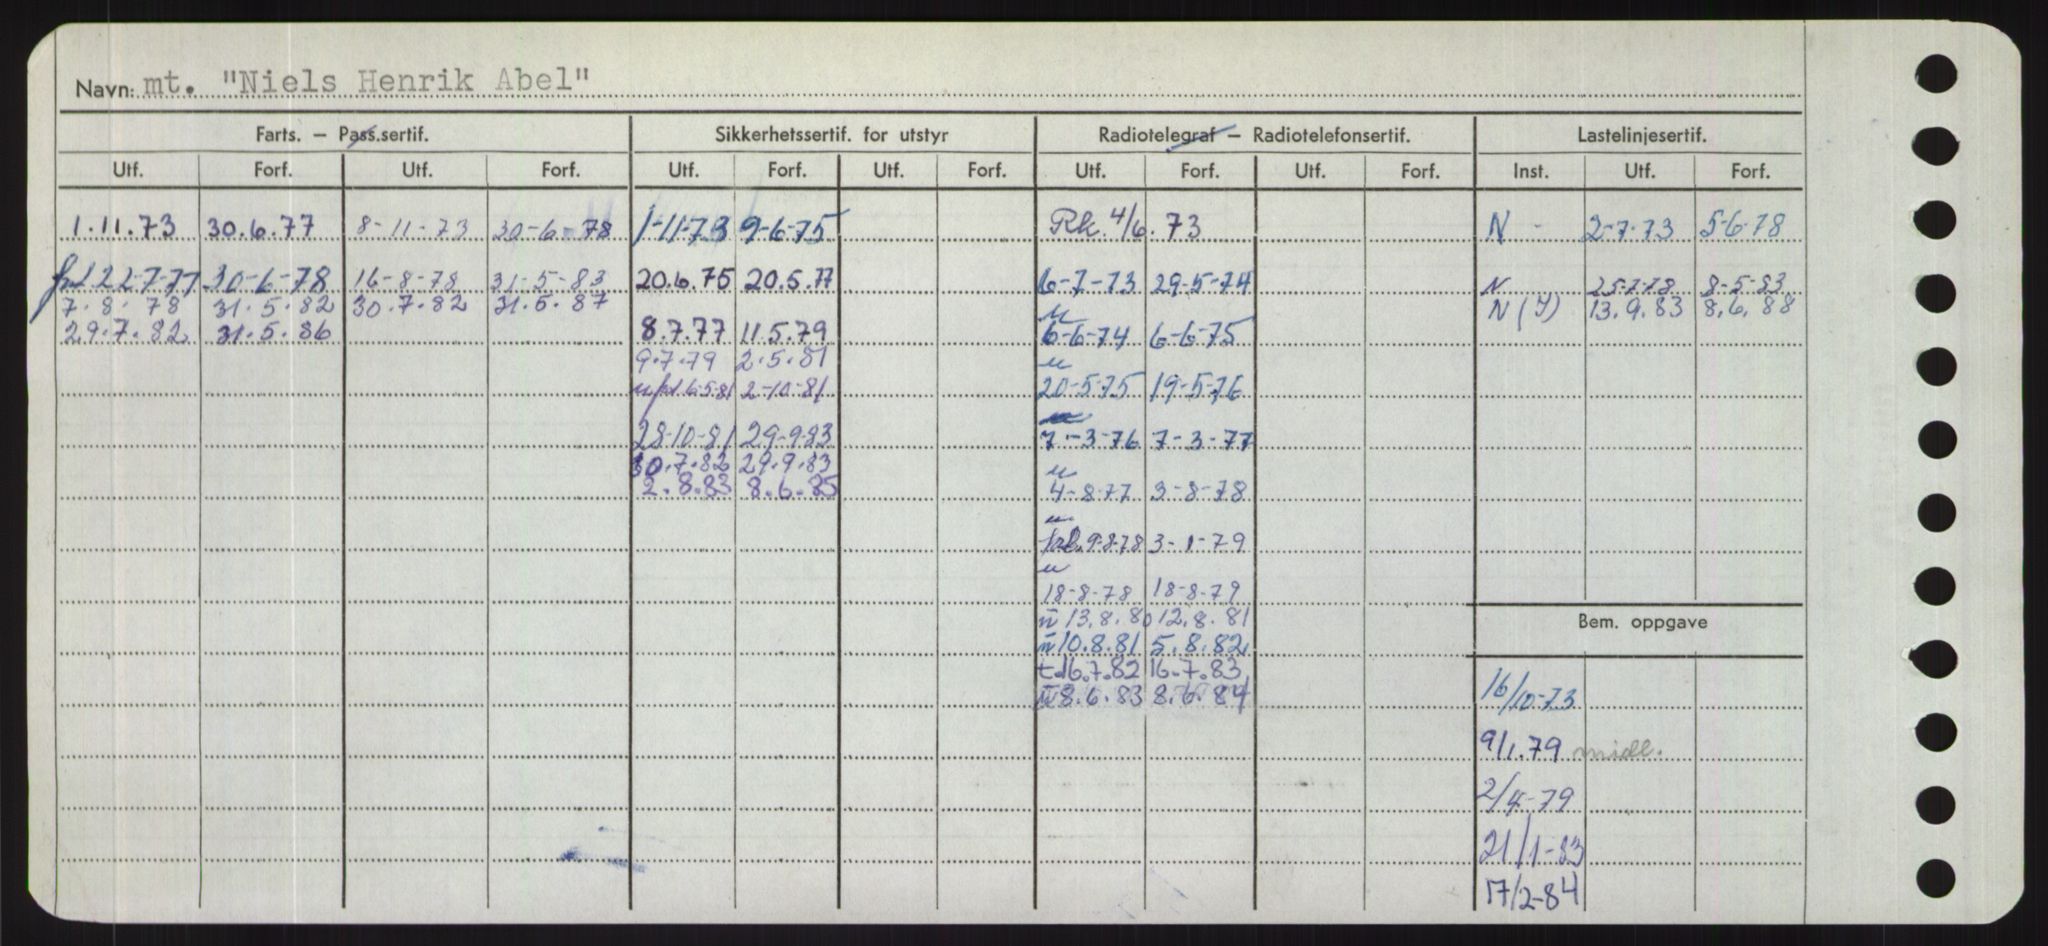 Navn: mt. "Niels Henrik Abel"
Farts. – Pass.sertif. Sikkerhetssertif. for utstyr Radiotelegraf – Radiotelefonsertif. Lastelinjesertif.
Utf. Forf. Utf. Forf. Utf. Forf. Utf. Forf. Utf. Forf. Utf. Forf. Inst. Utf. Forf.
1.11.73 30.6.77 8-11-73 30-6-78 1-11-73 9-6-75 Rk. 4/6.73 N - 2-7-73 5-6-78
22-7-77 30-6-78 16-8-78 31-5-83 20.6.75 20.5.77 6-7-73 29-5-74 N 25-7-78 8-5-83
7.8.78 31.5.82 30.7.82 31.5.87 N (Y) 13.9.83 8.6.88
29.7.82 31.5.86 8.7.77 11.5.79 u 6-6-74 6-6-75
9.7.79 2.5.81
6-5-81 2-10-81 u 20-5-75 19-5-76
28-10-81 29-9-83 7-3-76 7-3-77
30.7.82 29.9.83
2.8.83 8.6.85 u 4-8-77 3-8-78
u
9-8-78 3-1-79
u
18-8-78 18-8-79
u 13.8.80 12.8.81
u 10.8.81 5.8.82
t.16.7.82 16.7.83
u 8.6.83 8.6.84
Bem. oppgave
16/10-73
9/1.79 midl.
2/4-79
21/1-83
17/2-84